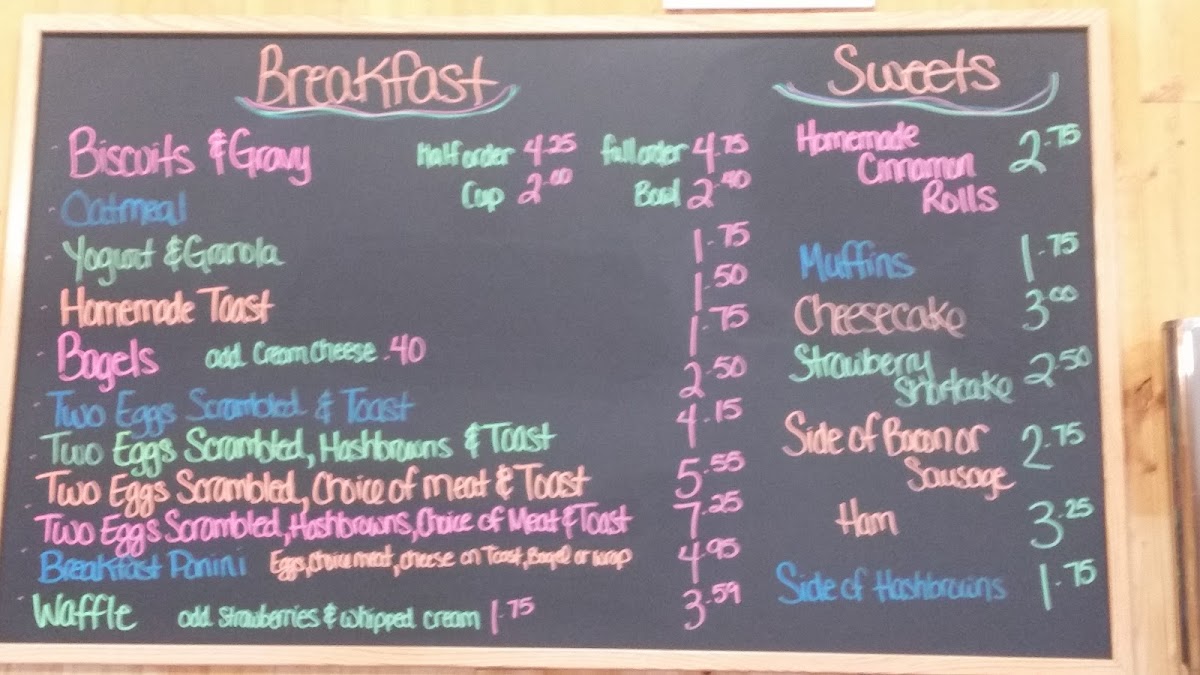 Breakfast
Biscuits & Gravy Half order 4.25 full order 4.75
Oatmeal Cup 2.00 Bowl 2.40
Yogurt & Granola 1.75
Homemade Toast 1.50
Bagels add Cream Cheese .40 1.75
Two Eggs Scrambled & Toast 2.50
Two Eggs Scrambled, Hashbrowns & Toast 4.15
Two Eggs Scrambled, Choice of meat & Toast 5.55
Two Eggs Scrambled, Hashbrowns, Choice of Meat & Toast 7.25
Breakfast Panini Eggs, Choice meat, cheese on Toast, Bagel or wrap 4.95
Waffle add Strawberries & whipped cream 1.75 3.59
Sweets
Homemade 2.75
Cinnamon
Rolls
Muffins 1.75
Cheesecake 3.00
Strawberry 2.50
Shortcake
Side of Bacon or 2.75
Sausage
Ham 3.25
Side of Hashbrowns 1.75